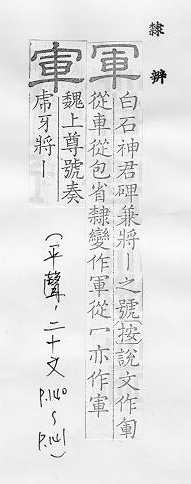 隸辨
軍
白石神君碑兼將丨之號按說文作𠣞
從車從包省隸變作軍從冖亦作軍
軍
魏上尊號奏
虎牙將丨
(平聲,二十文
P.140
~
P.141)